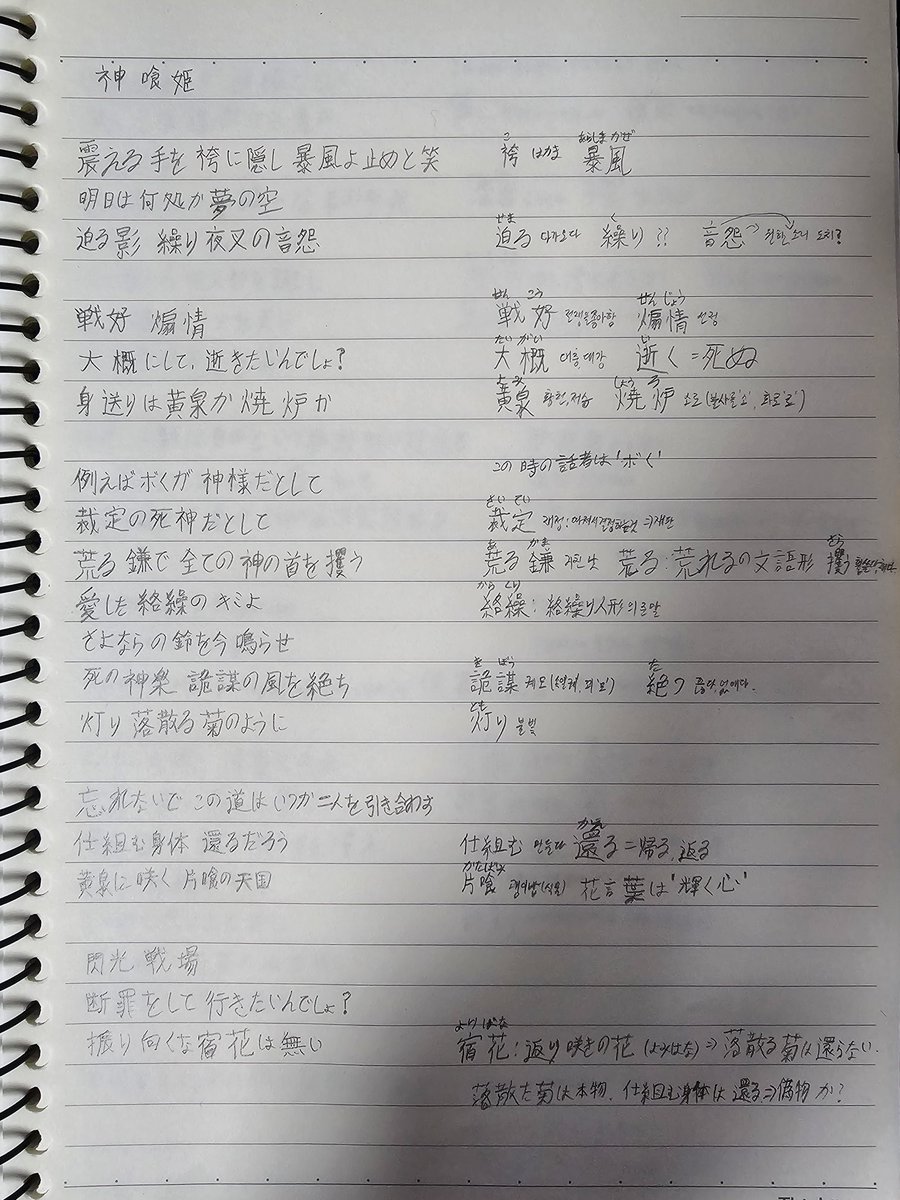 神喰姫
震える手を袴に隠し暴風よ止めと笑 こ 袴 はかま あらしまかぜ 暴風
明日は何処か夢の空
迫る影 繰り夜叉の音怨 せま 迫る 다가오다 く 繰り ?? 音怨 원한 소리 도치?
戦好 煽情 せん こう 戦好 전쟁을 좋아함 せんじょう 煽情 선정
大概にして、逝きたいんでしょ? たい がい 大概 대충, 대강 い 逝く=死ぬ
身送りは黄泉か焼炉か 黄泉 황천, 저승 しょう ろ 焼炉 소로(불사를'소', 화로'로')
例えばボくが神様だとして この時の話者は'ボく'
裁定の死神だとして さい てい 裁定 재정: ⇒재판
荒る鎌で全ての神の首を攫う あ 荒る かま 鎌 거친 낫 荒る:荒れるの文語形 さら 攫う
愛した絡繰のキミよ から くり 絡繰: 絡繰り人形의 준말
さよならの鈴を今鳴らせ
死の神楽 詭謀の風を絶ち き ぼう 詭謀 궤모 た 絶つ 끊다, 없애다.
灯り落散る菊のように とも 灯り 불빛
忘れないで この道はいつか二人を引き合わす
仕組む身体 還るだろう 仕組む 만들다 かえ 還る=帰る, 返る
黄泉に咲く片喰の天国 かたばみ 片喰 괭이밥(식물) 花言葉は'輝く心'
閃光戦場
断罪をして行きたいんでしょ?
振り向くな宿花は無い よみばな 宿花: 返り咲きの花 (よみはな) ⇒ 落散る菊は還らない.
落散た菊は本物、仕組む身体は還る⇒偽物か?